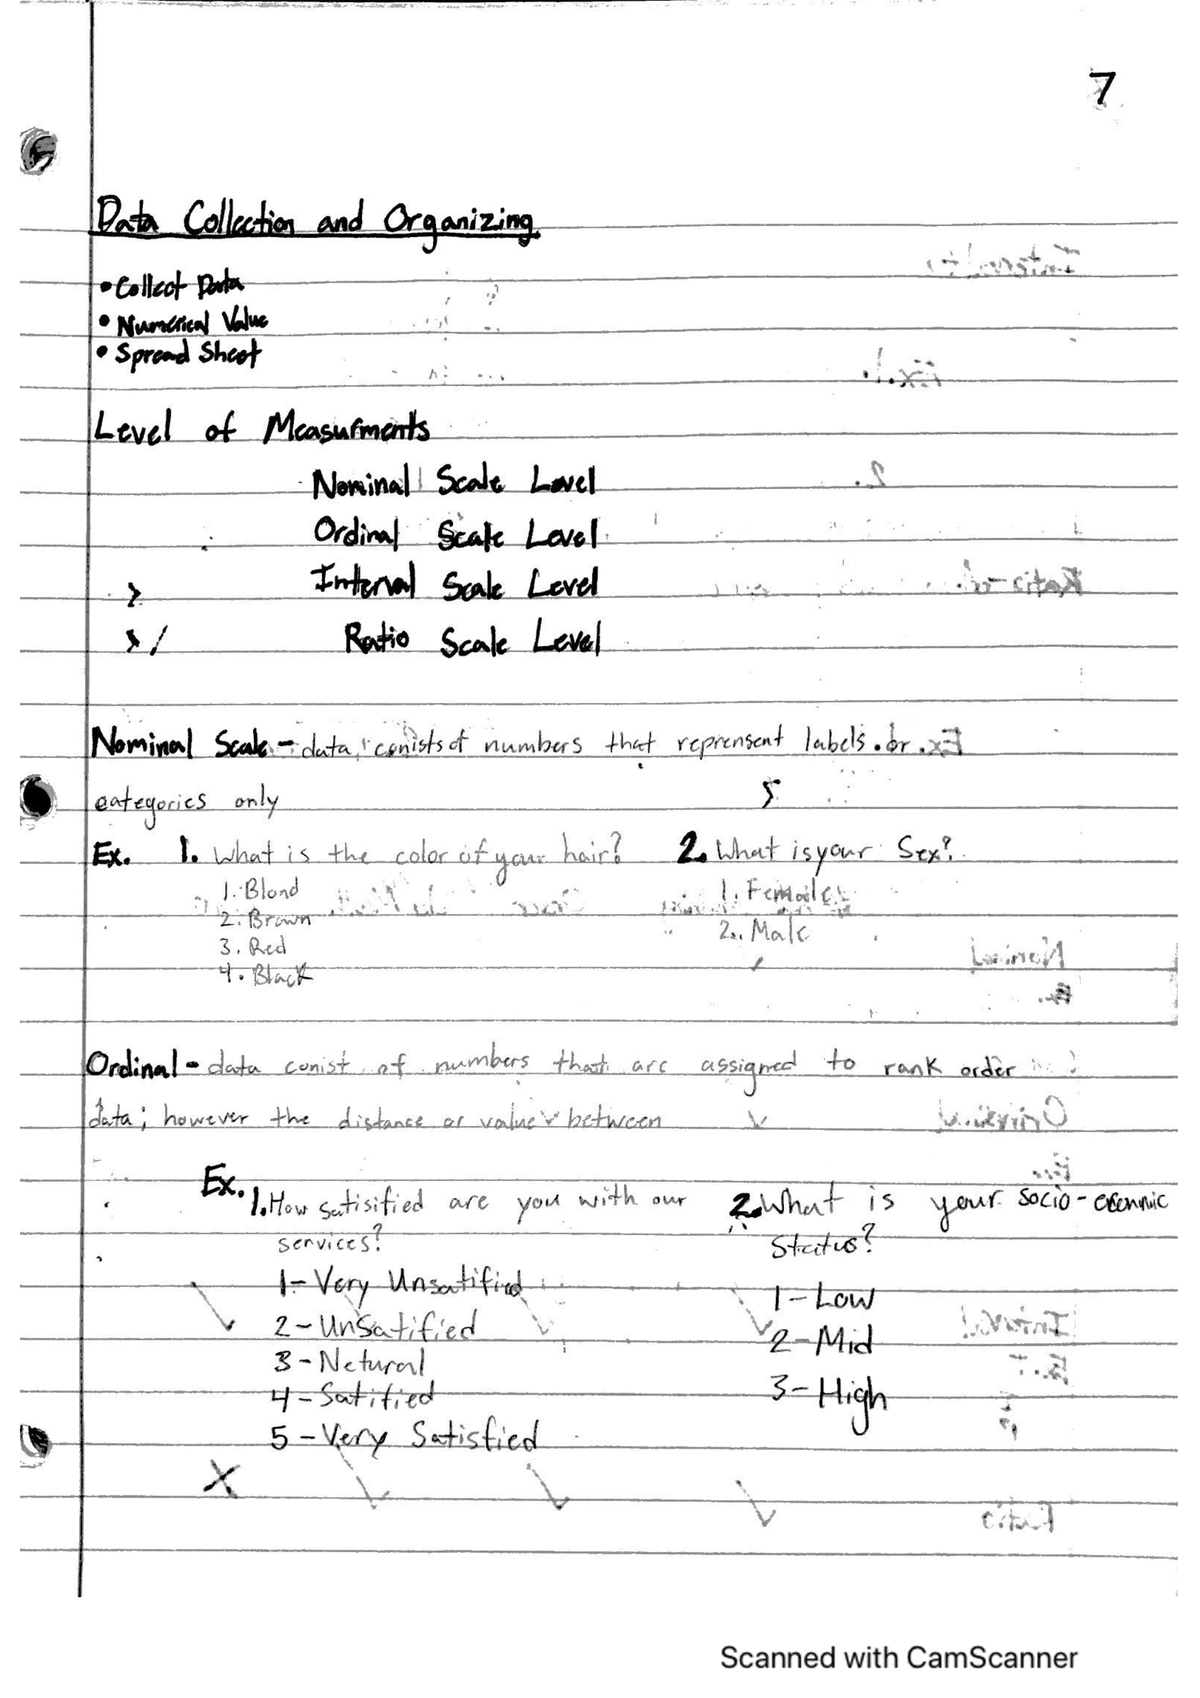 7
Data Collection and Organizing
• Collect Data
• Numerical Value
• Spread Sheet
Level of Measurments
Nominal Scale Level
Ordinal Scale Level
Interval Scale Level
Ratio Scale Level
Nominal Scale - data conists of numbers that reprensent labels or
categories only
Ex. 1. What is the color of your hair? 2. What is your Sex?
1. Blond 1. Female
2. Brown 2. Male
3. Red
4. Black
Ordinal - data conist of numbers that are assigned to rank order
data; however the distance or value between
Ex. 1. How satisified are you with our 2. What is your Socio-
services? Status?
1- Very Unsatified 1- Low
2 - Unsatified 2- Mid
3 - Netural 3- High
4 - Satified
5 - Very Satisfied
Scanned with CamScanner